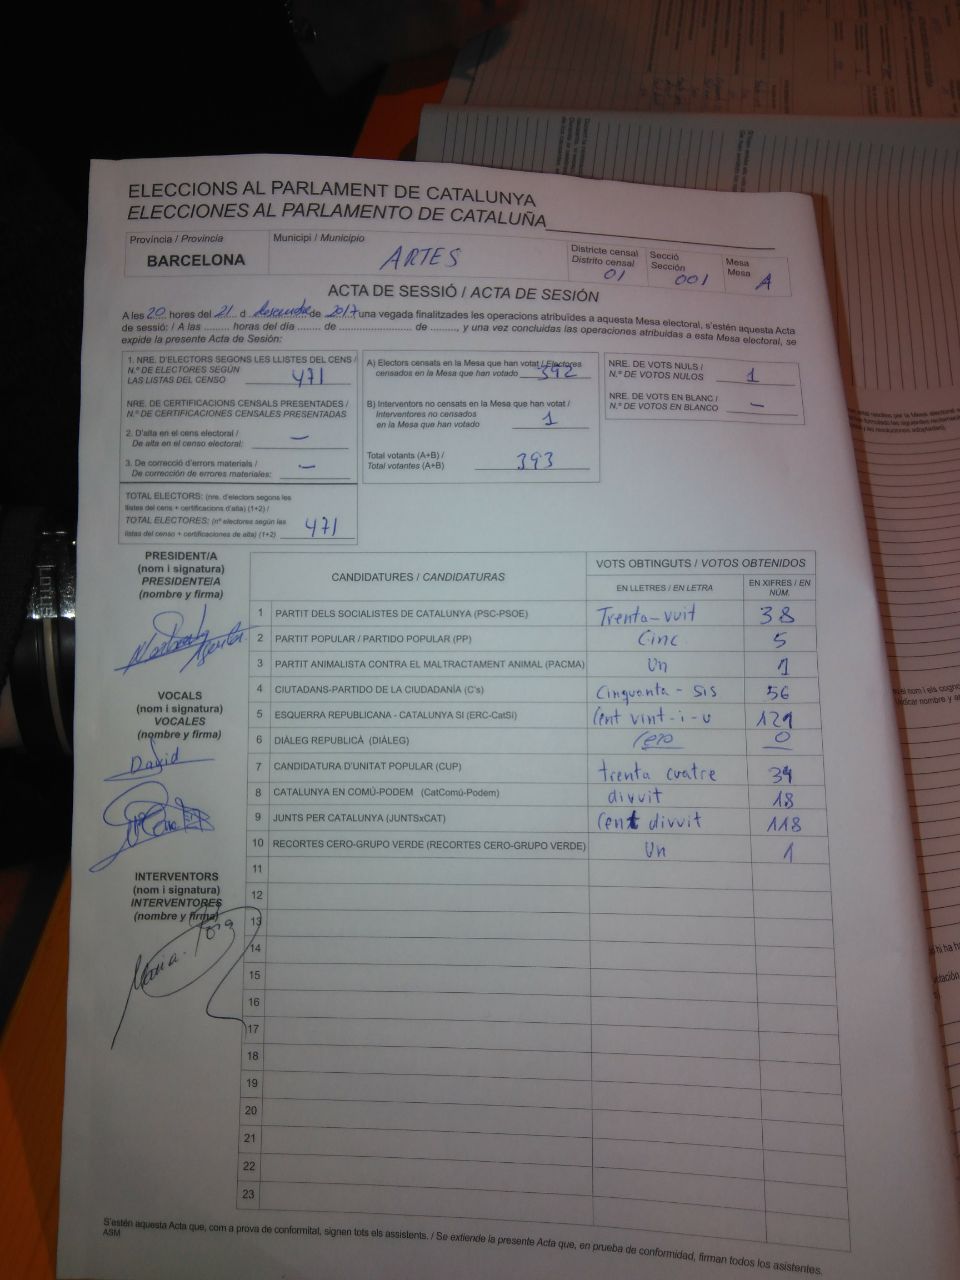 ELECCIONS AL PARLAMENT DE CATALUNYA
ELECCIONES AL PARLAMENTO DE CATALUÑA
Província / Provincia
BARCELONA
Municipi / Municipio
ARTES
Districte censal
Distrito censal
01
Secció
Sección
001
Mesa
Mesa
A
ACTA DE SESSIÓ / ACTA DE SESIÓN
A les 20 hores del 21 d desembre de 2017 una vegada finalitzades les operacions atribuïdes a aquesta Mesa electoral, s'estén aquesta Acta
de sessió: / A las ......... horas del día ....... de ...................... de ........, y una vez concluidas las operaciones atribuidas a esta Mesa electoral, se
expide la presente Acta de Sesión:
1. NRE. D'ELECTORS SEGONS LES LLISTES DEL CENS /
N.º DE ELECTORES SEGÚN
LAS LISTAS DEL CENSO 471
NRE. DE CERTIFICACIONS CENSALS PRESENTADES /
N.º DE CERTIFICACIONES CENSALES PRESENTADAS
2. D'alta en el cens electoral /
De alta en el censo electoral: —
3. De correcció d'errors materials /
De corrección de errores materiales: —
TOTAL ELECTORS: (nre. d'electors segons les
llistes del cens + certificacions d'alta) (1+2) /
TOTAL ELECTORES: (nº electores según las
listas del censo + certificaciones de alta) (1+2) 471
A) Electors censats en la Mesa que han votat / Electores
censados en la Mesa que han votado 392
B) Interventors no censats en la Mesa que han votat /
Interventores no censados
en la Mesa que han votado 1
Total votants (A+B) /
Total votantes (A+B) 393
NRE. DE VOTS NULS /
N.º DE VOTOS NULOS 1
NRE. DE VOTS EN BLANC /
N.º DE VOTOS EN BLANCO —
PRESIDENT/A
(nom i signatura)
PRESIDENTE/A
(nombre y firma)
VOCALS
(nom i signatura)
VOCALES
(nombre y firma)
David
INTERVENTORS
(nom i signatura)
INTERVENTORES
(nombre y firma)
CANDIDATURES / CANDIDATURAS
VOTS OBTINGUTS / VOTOS OBTENIDOS
EN LLETRES / EN LETRA
EN XIFRES / EN NÚM.
1 PARTIT DELS SOCIALISTES DE CATALUNYA (PSC-PSOE) Trenta-vuit 38
2 PARTIT POPULAR / PARTIDO POPULAR (PP) Cinc 5
3 PARTIT ANIMALISTA CONTRA EL MALTRACTAMENT ANIMAL (PACMA) Un 1
4 CIUTADANS-PARTIDO DE LA CIUDADANÍA (C's) Cinquanta-sis 56
5 ESQUERRA REPUBLICANA - CATALUNYA SI (ERC-CatSí) Cent vint-i-u 121
6 DIÀLEG REPUBLICÀ (DIÀLEG) Cero 0
7 CANDIDATURA D'UNITAT POPULAR (CUP) trenta cuatre 34
8 CATALUNYA EN COMÚ-PODEM (CatComú-Podem) divvit 18
9 JUNTS PER CATALUNYA (JUNTSxCAT) Cent divvit 118
10 RECORTES CERO-GRUPO VERDE (RECORTES CERO-GRUPO VERDE) Un 1
11
12
13
14
15
16
17
18
19
20
21
22
23
S'estén aquesta Acta que, com a prova de conformitat, signen tots els assistents. / Se extiende la presente Acta que, en prueba de conformidad, firman todos los asistentes.
ASM